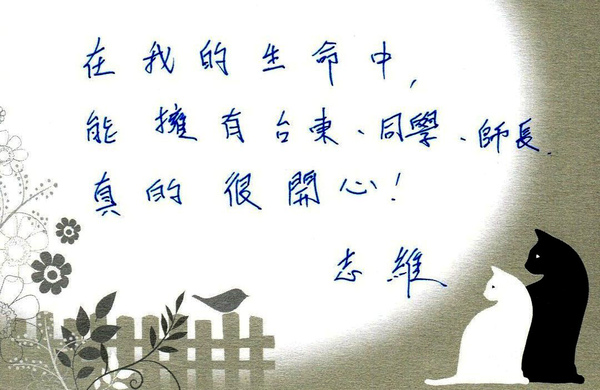 在我的生命中,
能擁有台東、同學、師長
真的很開心!
志維